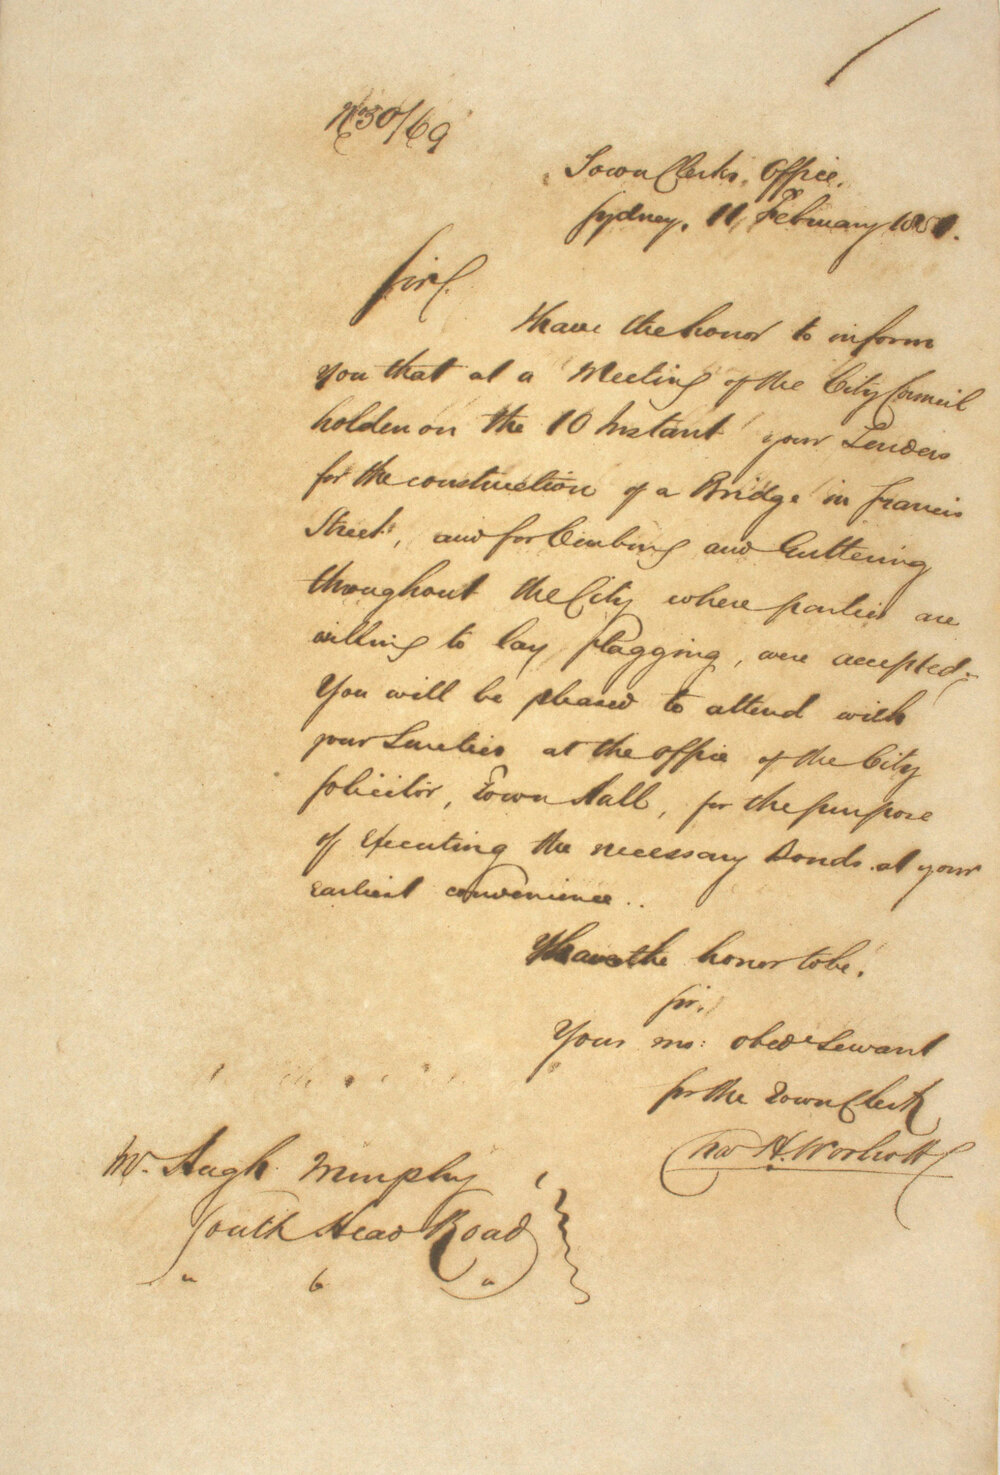 No 50/69
Town Clerks. Office.
Sydney, 11, February 1851.
Sir,
I have the honor to inform
you that at a Meeting of the City Council
holden on the 10 Instant your Tenders
for the construction of a Bridge in Francis
Street, and for Curbing and Guttering
throughout the City where parties are
willing to lay flagging, were accepted.
You will be pleased to attend with
your Sureties at the office of the City
Solicitor, Town Hall, for the purpose
of Executing the necessary Bonds at your
Earliest convenience..
I have the honor to be.
Sir.
Your mo: obedt Servant
for the Town Clerk
H. Woolcott
Mr. Hugh Murphy
South Head Road